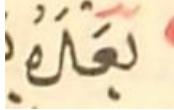 بَعَدَهُ